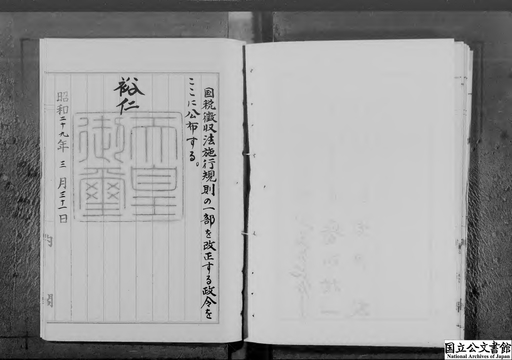 国税徴収法施行規則の一部を改正する政令を
ここに公布する。
裕仁
天皇
御璽
昭和二十九年三月三十一日
国立公文書館
National Archives of Japan